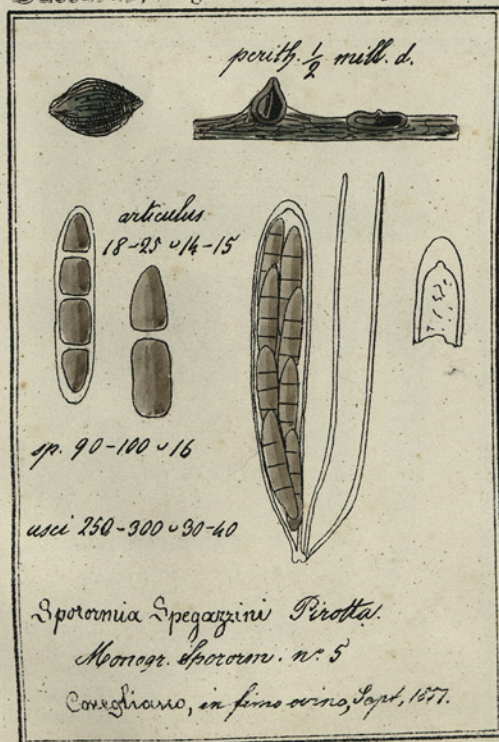 perith. ½ mill. d.
articulus
18-25 ᴗ 14-15
sp. 90-100 ᴗ 16
asci 250-300 ᴗ 30-40
Sporormia Spegazzini Pirotta.
Monogr. Spororm. n.º 5
Conegliano, in fimo ovino, Sept, 1877.